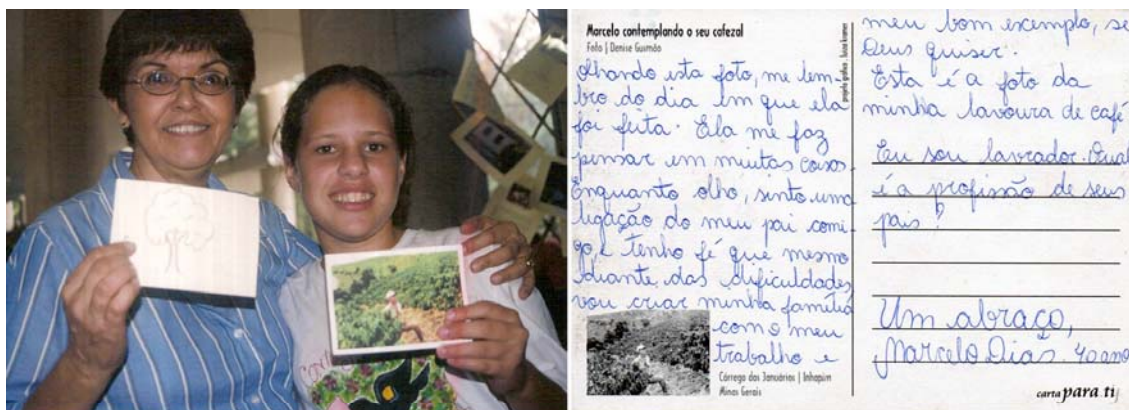 Marcelo contemplando o seu cafezal
Foto | Denise Gusmão
olhando esta foto, me lem-
bro do dia em que ela
foi feita. Ela me faz
pensar em muitas coisas.
Enquanto olho, sinto uma
ligação do meu pai comi-
go, e tenho fé que mesmo
diante das dificuldades
vou criar minha família
com o meu
trabalho e
Córrego dos Januários | Inhapim
Minas Gerais
projeto gráfico . luiza kramer
meu bom exemplo, se
Deus quiser.
Esta é a foto da
minha lavoura de café
Eu sou lavrador. Qual
é a profissão de seus
pais?
Um abraço,
Marcelo Dias 40 ano
carta para ti